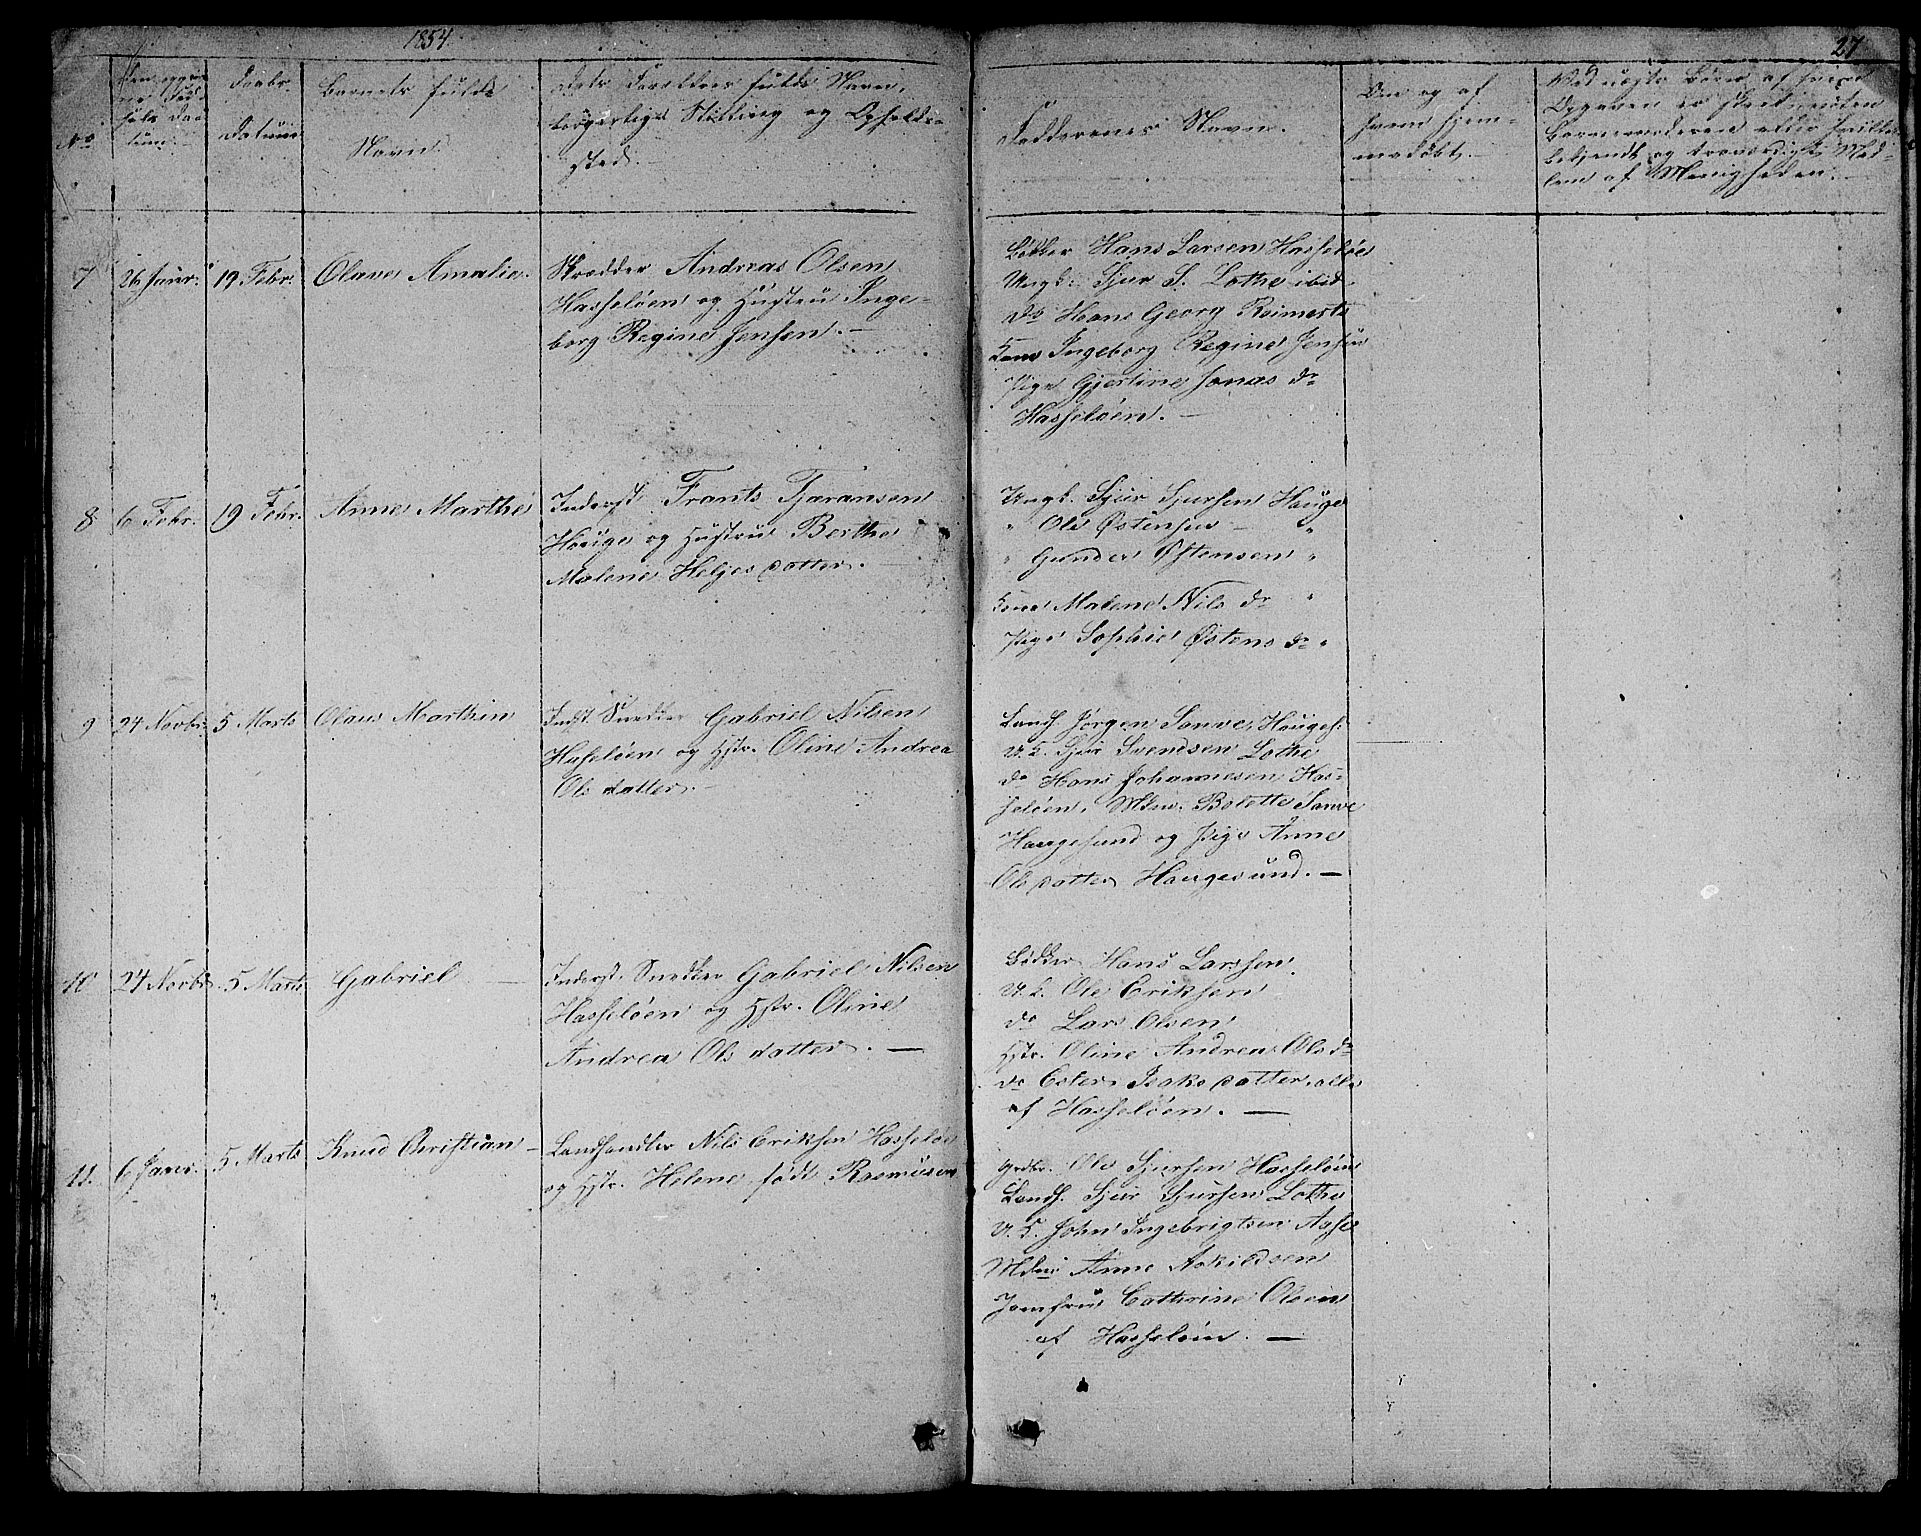 1854
27
No
Den opgivne Fødsels Datum.
Daabs Datum
Barnets fulde Navn
Dets Forældres fulde Navn, borgerlige Stilling og Opholdssted.
Faddernes Navn.
Om og af hvem hjemmedøbt.
Ved uægte Børn af hvem Opgaven er skeet
Barnemoderen eller hvilke
bekjendt og troværdigt Medlem af Menigheden.
7
26 Januar.
19 Febr.
Olave Amalie.
Skrædder Andreas Olsen
Hasseløen og Hustru Inge-
borg Regine Jensen. —
Bødker Hans Larsen Hasseløe
Ungk. Sjur S. Lothe ibid.
do Hans Georg Reimerts
Kone Ingeborg Regine Jensen
Pige Gjertine Jonas dr
Hasseløen. —
8
6 Febr.
19 Febr.
Anne Marthe
Inderst. Frants Tjøransen
Hauge og Hustru Berthe
Malene Heljes datter. —
Ungk. Sjur Sjursen Hauge
" Ole Østensen — "
" Gunder Østensen "
Kone Malene Nils dr "
Pige Sophie Østens dr "
9
24 Novbr.
5 Marts
Olaus Marthin
Indst. Snedker Gabriel Nilsen
Hasseløen og Hstr. Oline Andrea
Ols datter. —
Landh. Jørgen Sanve, Hauges.
U. K. Sjur Svendsen Lothe
do Hans Johannesen Has-
seløen, Mdm. Bolette Sanve
Haugesund og Pige Anne
Ols datter Haugesund. —
10
24 Novbr.
5 Marts
Gabriel —
Inderst. Snedker Gabriel Nilsen
Hasseløen og Hstr. Oline
Andrea Ols datter. —
Bødker Hans Larssen
U. K. Ole Eriksen
do Lars Olsen
Hstr. Oline Andrea Ols dr
do Ester Isaks datter, alle
af Hasseløen. —
11.
6 Januar.
5 Marts
Knud Christian —
Landhandler Nils Eriksen Hasseløe
og Hstr. Helene, født Rasmusen
Grdbr. Ole Sjursen Hasseløen
Landh. Sjur Sjursen Lothe
U. K. John Ingebrigtsen
Mdm Anne Askildsen
Jomfru Cathrine Olsen
af Hasseløen. —